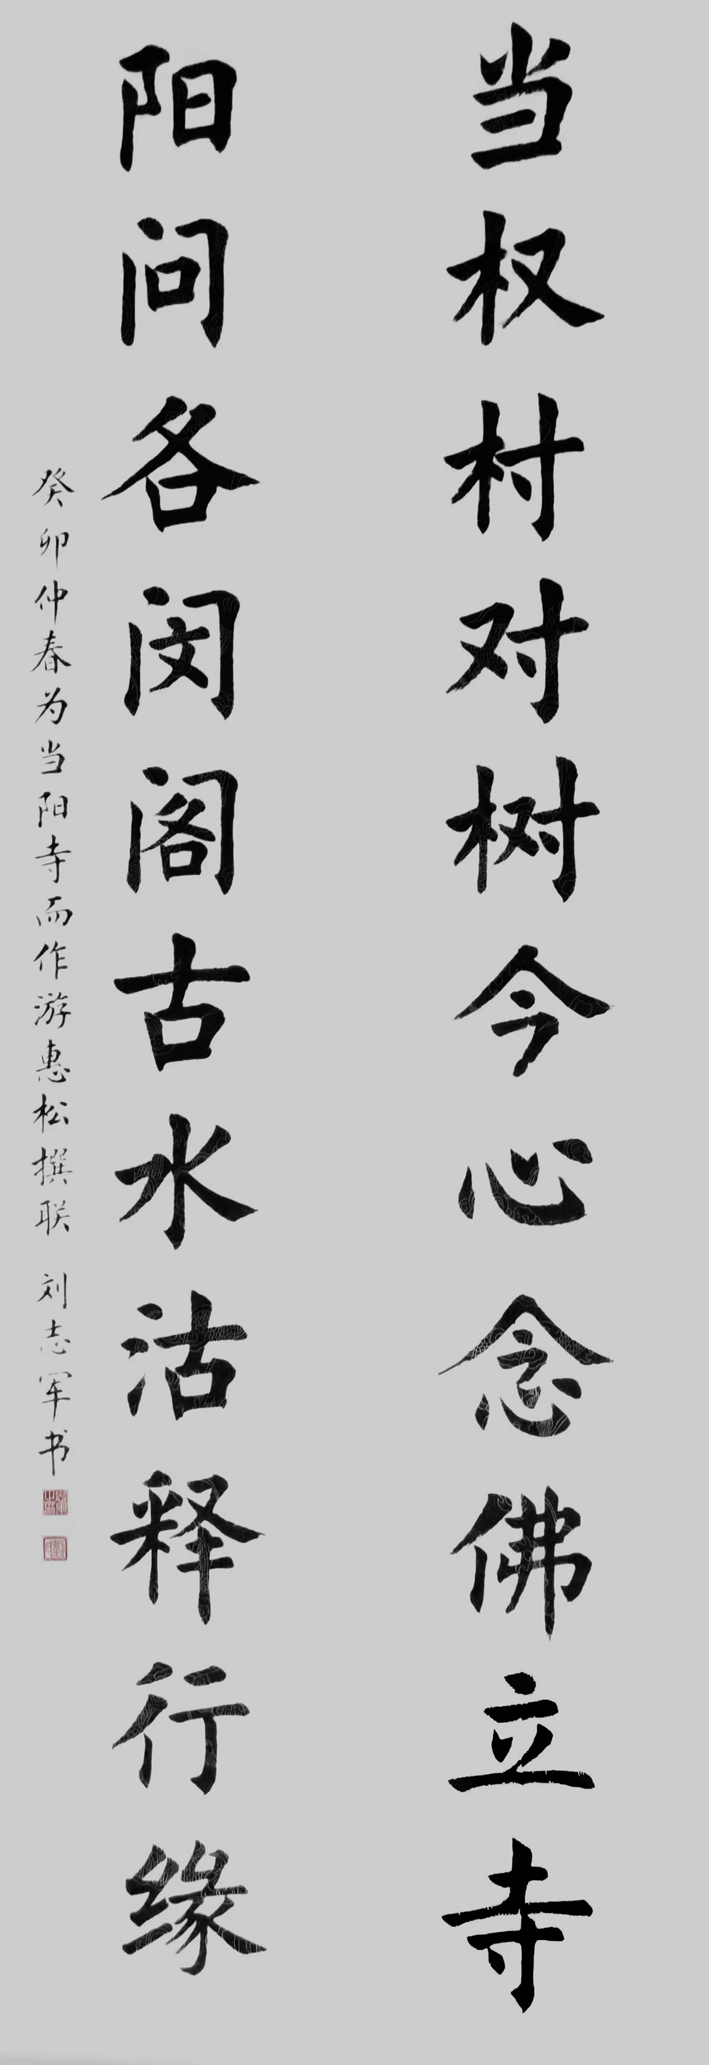 当权村对树今心念佛立寺
阳问各闵阁古水沽释行缘
癸卯仲春为当阳寺而作游惠松撰联 刘志军书